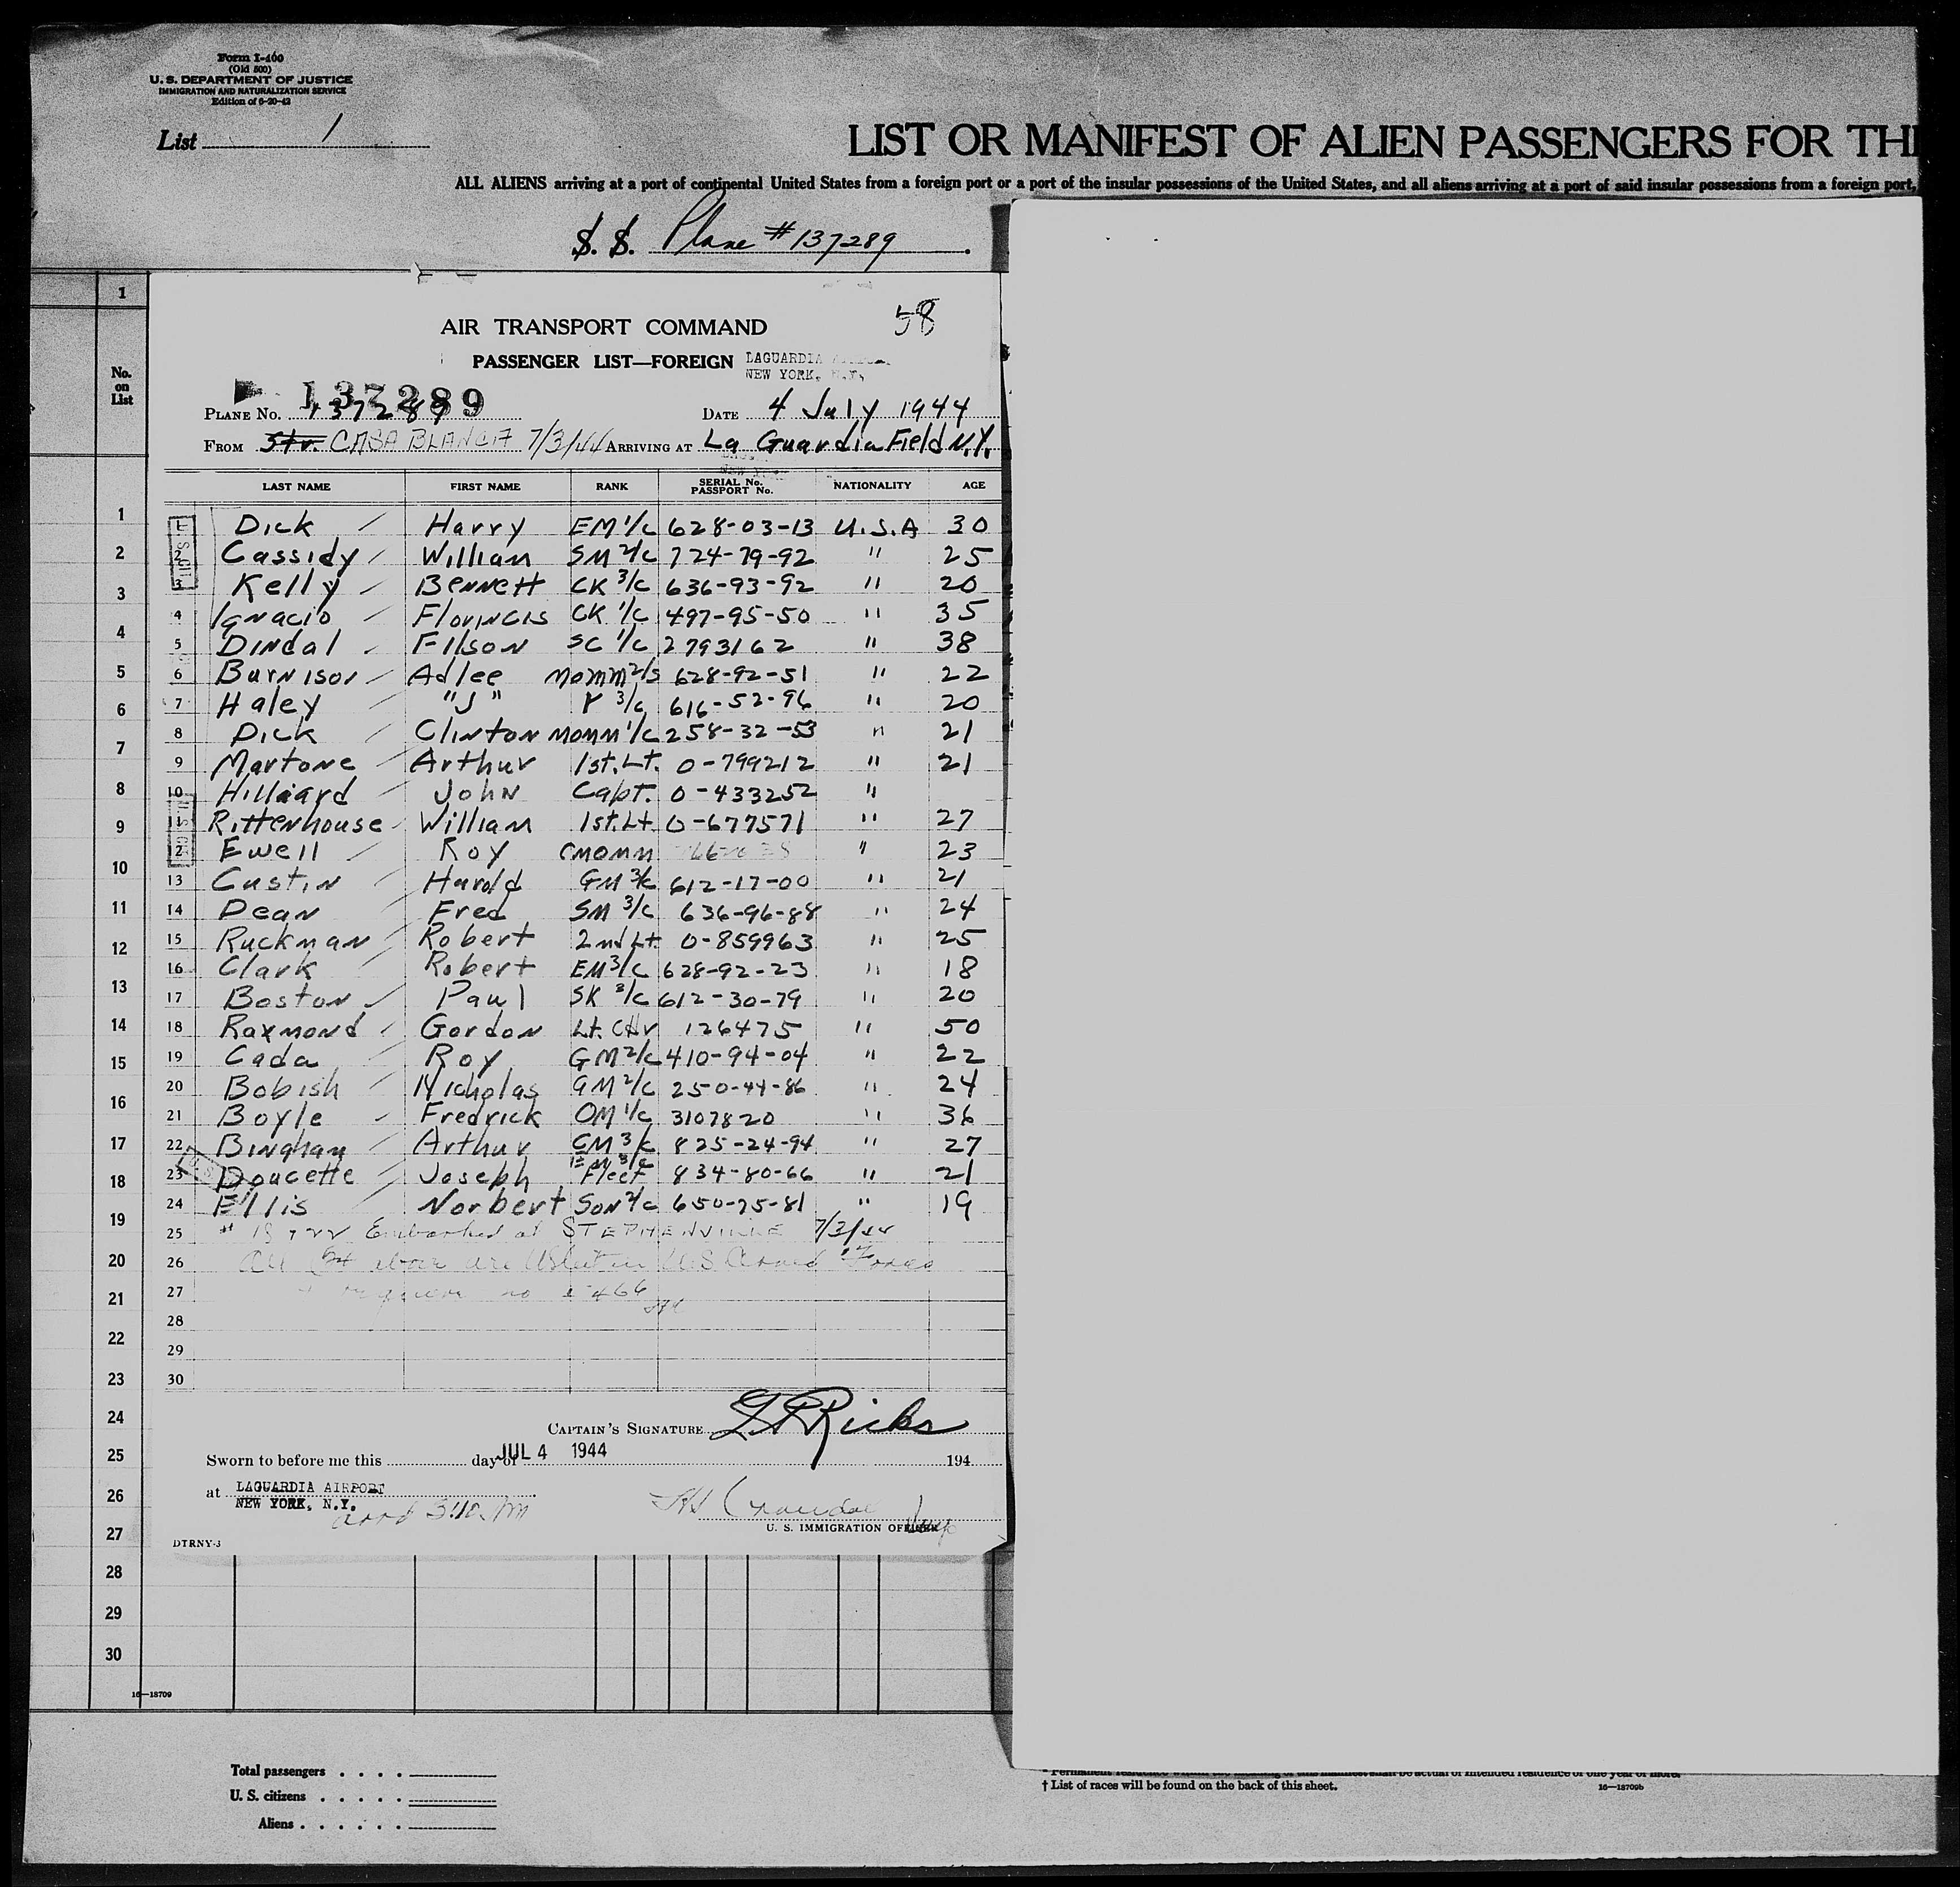 Form I-460
(Old 500)
U. S. DEPARTMENT OF JUSTICE
IMMIGRATION AND NATURALIZATION SERVICE
Edition of 6-20-42
List 1
LIST OR MANIFEST OF ALIEN PASSENGERS FOR TH
ALL ALIENS arriving at a port of continental United States from a foreign port or a port of the insular possessions of the United States, and all aliens arriving at a port of said insular possessions from a foreign port,
S. S. Plane #137289
1
No. on List
AIR TRANSPORT COMMAND 58
PASSENGER LIST—FOREIGN
LAGUARDIA
NEW YORK, N.Y.
137289
PLANE No. 137289 DATE 4 July 1944
FROM Str. CASA BLANCA 7/3/44 ARRIVING AT La Guardia Field N.Y.
LAST NAME FIRST NAME RANK SERIAL No. PASSPORT No. NATIONALITY AGE
1 Dick Harry EM 1/c 628-03-13 U.S.A 30
2 Cassidy William SM 2/c 724-79-92 " 25
3 Kelly Bennett CK 3/c 636-93-92 " 20
4 Ignacio Flovincis CK 1/c 497-95-50 " 35
5 Dindal Filson SC 1/c 2793162 " 38
6 Burnison Adlee MOMM 2/s 628-92-51 " 22
7 Haley "J" Y 3/c 616-52-96 " 20
8 Dick Clinton MOMM 1/c 258-32-53 " 21
9 Martone Arthur 1st. Lt. O-799212 " 21
10 Hillaard John Capt. O-433252 "
11 Rittenhouse William 1st. Lt. O-677571 " 27
12 Ewell Roy CMOMM " 23
13 Custin Harold GM 3/c 612-17-00 " 21
14 Dean Fred SM 3/c 636-96-88 " 24
15 Ruckman Robert 2nd Lt. O-859963 " 25
16 Clark Robert EM 3/c 628-92-23 " 18
17 Boston Paul SK 3/c 612-30-79 " 20
18 Raxmond Gordon Lt. Cdr 126475 " 50
19 Cada Roy GM 2/c 410-94-04 " 22
20 Bobish Nicholas GM 2/c 250-44-86 " 24
21 Boyle Fredrick OM 1/c 3107820 " 36
22 Bingham Arthur CM 3/c 825-24-94 " 27
23 Doucette Joseph 834-80-66 " 21
24 Ellis Norbert Son 2/c 650-75-81 " 19
25 Embarked at STEPHENVILLE 7/3/44
26 All above are in US Armed Forces
27
28
29
30
CAPTAIN'S SIGNATURE Ricks
Sworn to before me this day of JUL 4 1944 194
at LAGUARDIA AIRPORT
NEW YORK, N.Y.
arrd 3:10 PM
U. S. IMMIGRATION OFFICER
DTRNY-3
1
2
3
4
5
6
7
8
9
10
11
12
13
14
15
16
17
18
19
20
21
22
23
24
25
26
27
28
29
30
16—18709
Total passengers
U. S. citizens
Aliens
† List of races will be found on the back of this sheet.
16—18709b